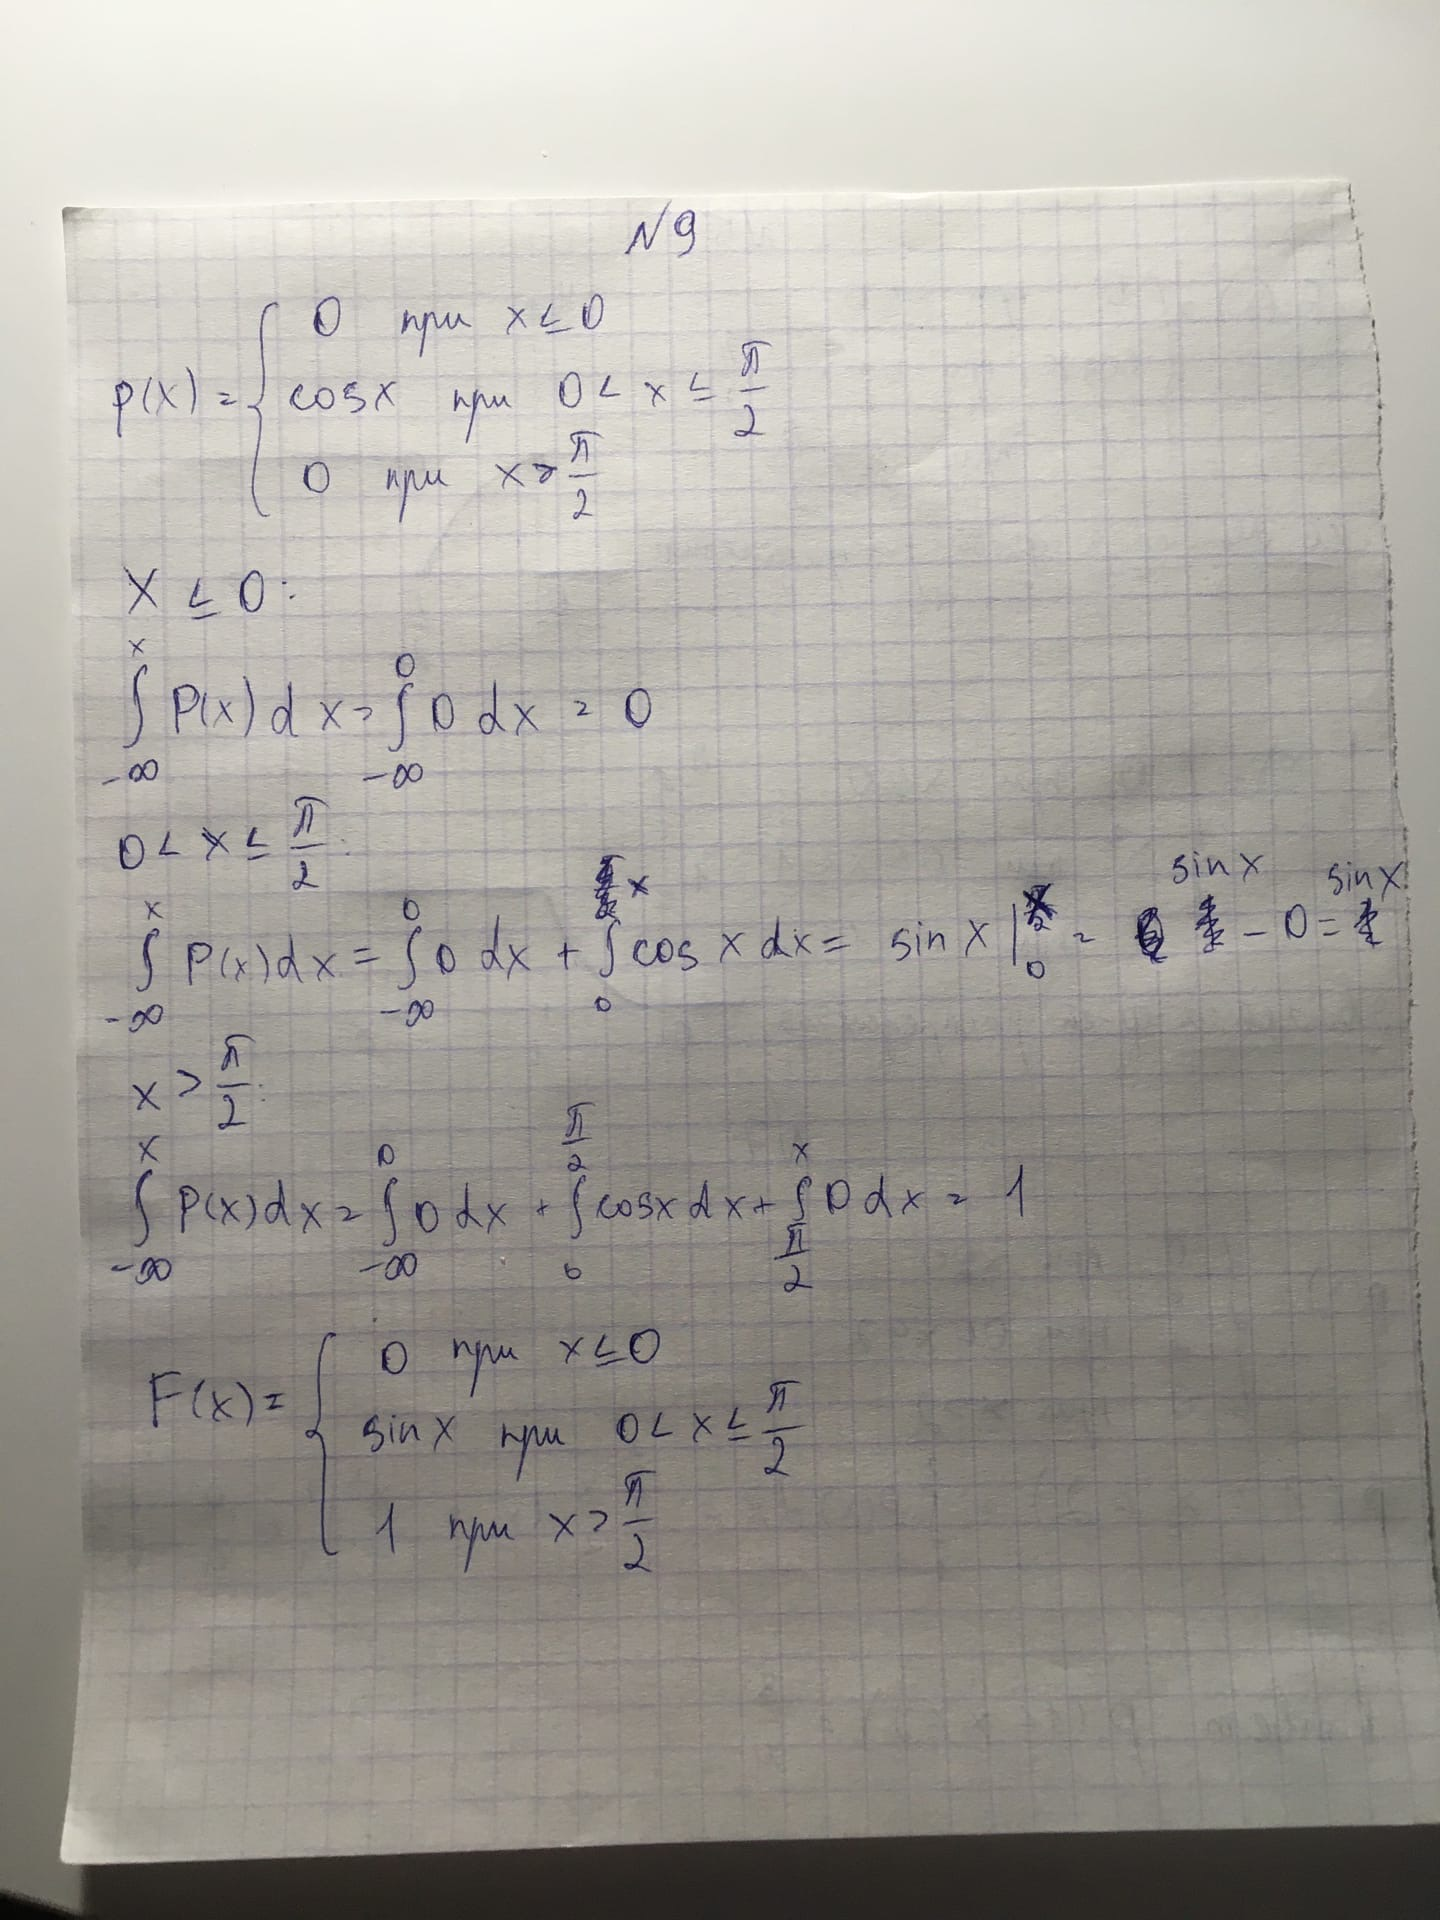 N9
p(x) = { 0 при x ≤ 0
cosx при 0 < x ≤ π/2
0 при x > π/2
X ≤ 0:
∫_{-∞}^{x} P(x)dx = ∫_{-∞}^{0} 0 dx = 0
0 < x ≤ π/2:
∫_{-∞}^{x} P(x)dx = ∫_{-∞}^{0} 0 dx + ∫_{0}^{x} cos x dx = sin x |_{0}^{x} = sin x - 0 = sin x
x > π/2:
∫_{-∞}^{x} P(x)dx = ∫_{-∞}^{0} 0 dx + ∫_{0}^{π/2} cosx dx + ∫_{π/2}^{x} 0 dx = 1
F(x) = { 0 при x ≤ 0
sin x при 0 < x ≤ π/2
1 при x > π/2